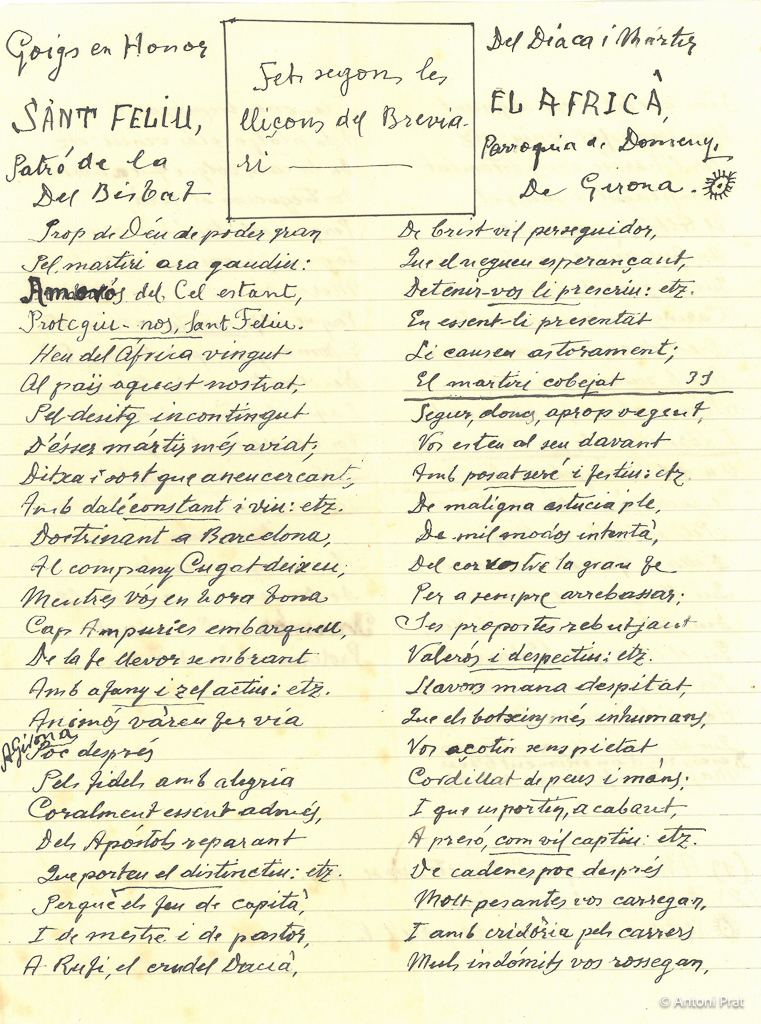 Goigs en Honor
SÀNT FELIU,
Patró de la
Del Bisbat
Fets segons les
lliçons del Brevia-
ri
Del Diaca i Màrtir
EL AFRICÀ,
Parroquia de Domeny,
De Girona.
Prop de Déu de poder gran
Pel martiri ara gaudiu:
Amorós del Cel estant,
Protegiu-nos, Sant Feliu.
Heu del Àfrica vingut
Al païs aquest nostrat,
Pel desitg incontingut
D'ésser màrtir més aviat;
Ditxa i sort que aneu cercant,
Amb dalé constant i viu: etz.
Doctrinant a Barcelona,
Al company Cugat deixeu;
Mentres vós en hora bona
Cap Ampuries embarqueu,
De la fe llevor sembrant
Amb afany i zel actiu: etz.
Animós vàreu fer via
A Girona
Poc després
Pels fidels amb alegria
Coralment essent admés,
Dels Apóstols reparant
Que porteu el distinctiu: etz.
Perquè els feu de capità,
I de mestre i de pastor,
A Rufí, el cruel Dacià,
De Crist vil perseguidor,
Que el negueu esperançant,
Detenir-vos li prescriu: etz.
En essent-li presentat
Li causeu astorament;
El martiri cobejat 33
Segur, doncs, aprop vegent,
Vos esteu al seu davant
Amb posat seré i festiu: etz.
De maligna astucia ple,
De mil modos intentà,
Del cor vostre la gran fe
Per a sempre arrebassar;
Ses propostes rebutjant
Valerós i despectiu: etz.
Llavors mana despitat,
Que els botxins més inhumans,
Vos açotin sens pietat
Cordillat de peus i mans;
I que us portin, acabant,
A presó, com vil captiu: etz.
De cadenes poc després
Molt pesantes vos carregan,
I amb cridòria pels carrers
Muls indómits vos rossegan,
© Antoni Prat